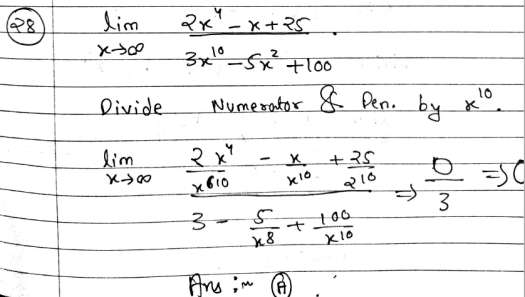 28 lim x→∞ (2x⁴ - x + 25) / (3x¹⁰ - 5x² + 100)
Divide Numerator & Den. by x¹⁰.
lim x→∞ (2x⁴/x¹⁰ - x/x¹⁰ + 25/2¹⁰) / (3 - 5/x⁸ + 100/x¹⁰) ⇒ 0/3 ⇒ 0
Ans :~ (A)